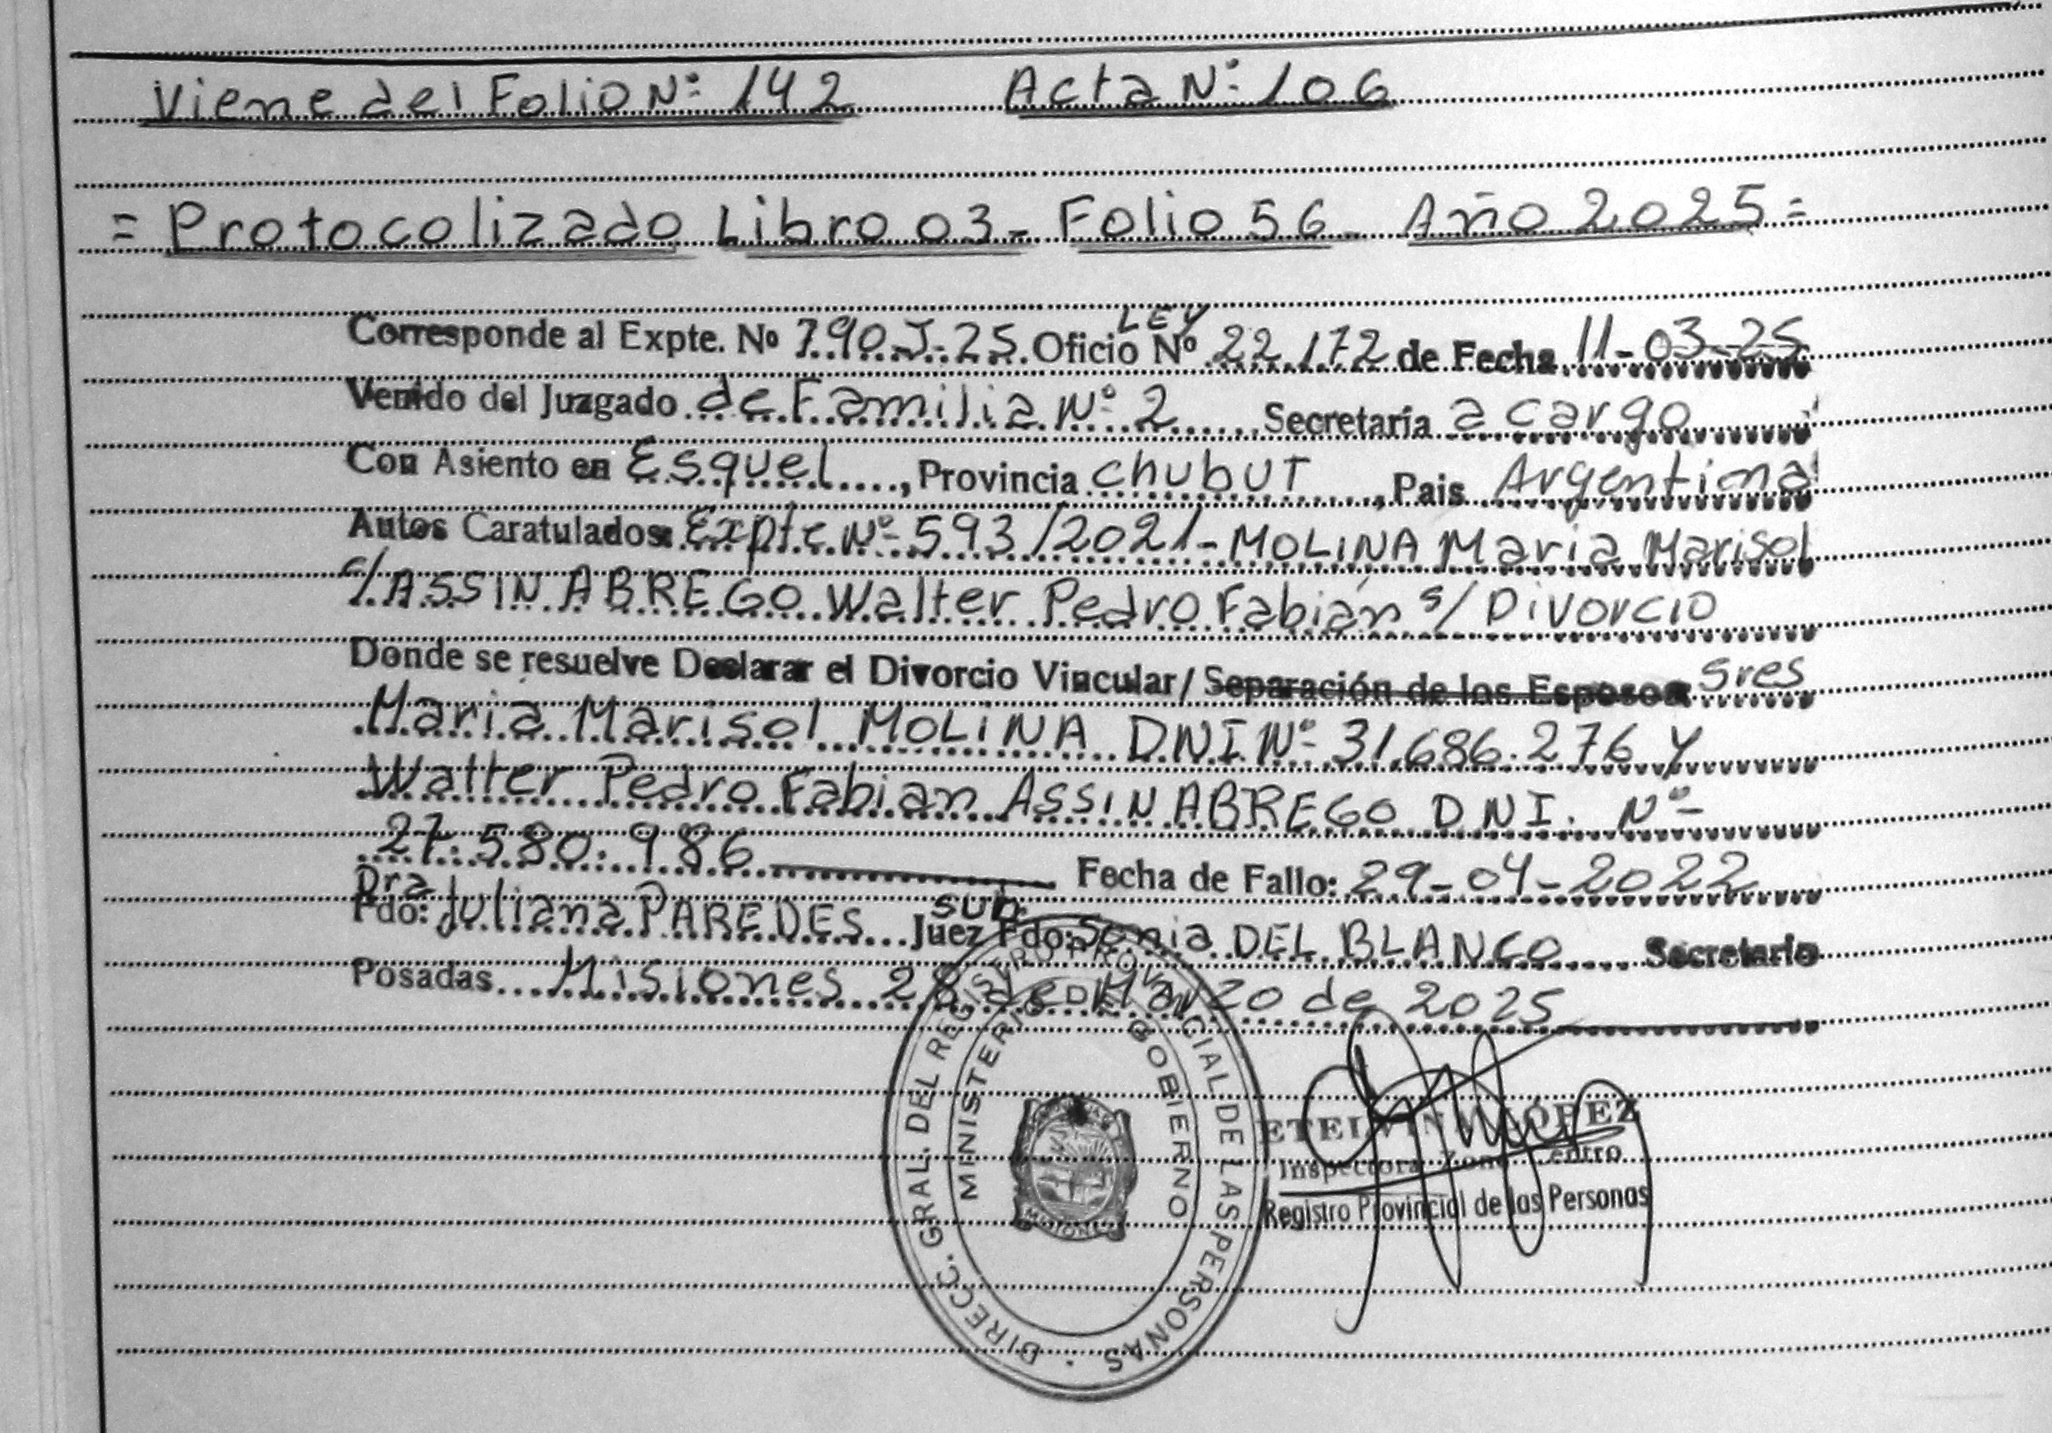 Viene del Folio Nº 142 Acta Nº 106
= Protocolizado Libro 03 - Folio 56 - Año 2025 =
LEY
Corresponde al Expte. Nº 790-J-25 Oficio Nº 22.172 de Fecha 11-03-25
Venido del Juzgado de Familia Nº 2 Secretaría a cargo
Con Asiento en Esquel, Provincia Chubut, Pais Argentina
Autos Caratulados: Expte Nº 593/2021 - MOLINA Maria Marisol
c/ ASSIN ABREGO Walter Pedro Fabián s/ Divorcio
Donde se resuelve Declarar el Divorcio Vincular/ Separación de los Esposos Sres
Maria Marisol MOLINA DNI Nº 31.686.276 y
Walter Pedro Fabian ASSIN ABREGO DNI. Nº
27.580.986 Fecha de Fallo: 29-04-2022
Dra sub.
Fdo: Juliana PAREDES Juez Fdo: Sonia DEL BLANCO Secretario
Posadas Misiones 28 de Marzo de 2025
DIRECC. GRAL. DEL REGISTRO PROVINCIAL DE LAS PERSONAS
MINISTERIO DE GOBIERNO
MISIONES
ETELVINA LÓPEZ
Inspectora Zona Centro
Registro Provincial de las Personas